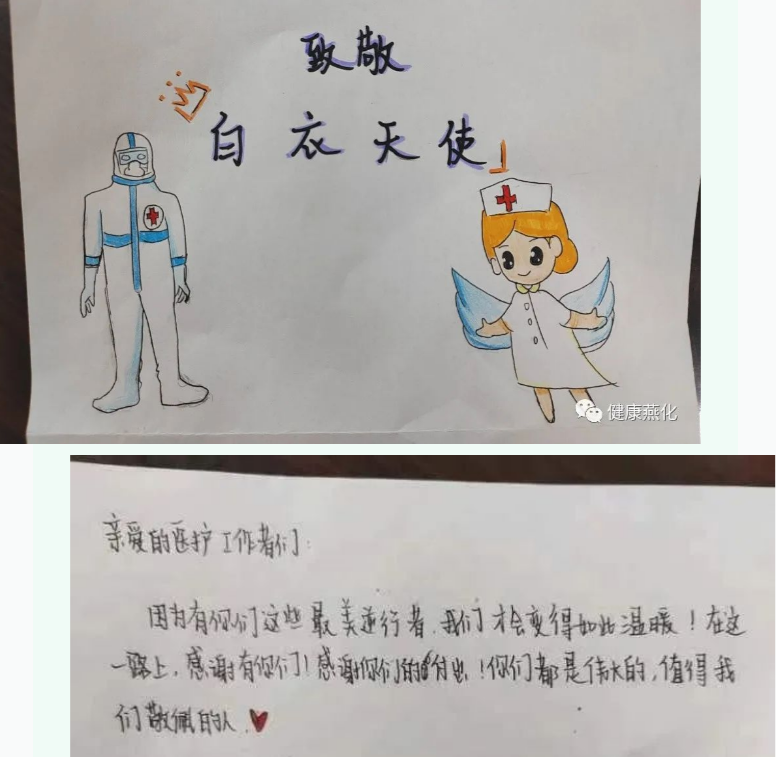 致敬
白衣天使
健康燕化
亲爱的医护工作者们:
因为有你们这些最美逆行者,我们才会变得如此温暖!在这
一路上,感谢有你们!感谢你们的付出!你们都是伟大的,值得我
们敬佩的人